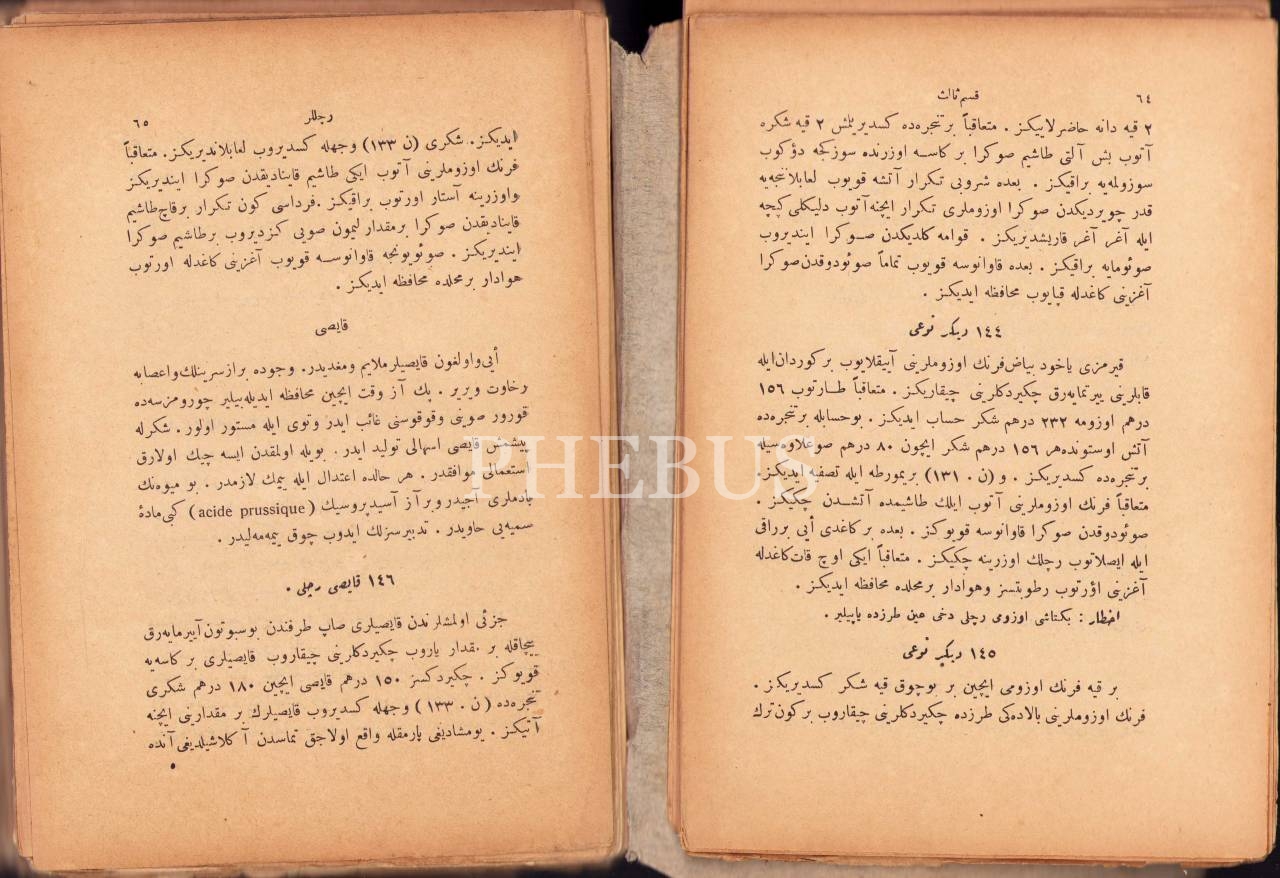 ٦٤ قسم ثالث
٢ قیه دانه حاضرلاییكز . متعاقباً بر تنجره‌ده كسدیرلمش ٢ قیه شكره
آتوب بش آلتی طاشیم صوكرا بر كاسه اوزرنده سوزكجه دؤكوب
سوزولمه‌یه براقیكز . بعده شروبی تكرار آتشه قویوب لعابلانجه‌یه
قدر چویردیكدن صوكرا اوزوملری تكرار ایچنه آتوب دلیكلی كپچه
ایله آغر آغر قاریشدیریكز . قوامه كلدیكدن صوكرا ایندیروب
صوئومایه براقیكز . بعده قاوانوسه قویوب تماماً صوئودوقدن صوكرا
آغزینی كاغدله قپایوب محافظه ایدیكز .
١٤٤ دیكر نوعی
قیرمزی یاخود بیاض فرنك اوزوملرینی آییقلایوب بر كوردان ایله
قابلرینی ییرتمایه‌رق چكیردكلرینی چیقاریكز . متعاقباً طارتوب ١٥٦
درهم اوزومه ٢٣٢ درهم شكر حساب ایدیكز . بوحسابله بر تنجره‌ده
آتش اوستونده هر ١٥٦ درهم شكر ایچون ٨٠ درهم صو علاوه‌سیله
بر تنجره‌ده كسدیریكز . و (ن . ١٣١) بریمورطه ایله تصفیه ایدیكز .
متعاقباً فرنك اوزوملرینی آتوب ایلك طاشیمده آتشدن چكیكز .
صوئودوقدن صوكرا قاوانوسه قویوكز . بعده بر كاغدی أیی برراقی
ایله ایصلاتوب رچلك اوزرینه چكیكز . متعاقباً ایكی اوچ قات كاغدله
آغزینی اؤرتوب رطوبتسز وهوادار بر محلده محافظه ایدیكز .
اخطار : بكتاشی اوزومی رچلی دخی عین طرزده یاپیلیر .
١٤٥ دیكر نوعی
بر قیه فرنك اوزومی ایچین بر بوچوق قیه شكر كسدیریكز .
فرنك اوزوملرینی بالاده‌كی طرزده چكیردكلرینی چیقاروب بر كون ترك
رچللر ٦٥
ایدیكز . شكری (ن ١٣٣) وجهله كسدیروب لعابلاندیریكز . متعاقباً
فرنك اوزوملرینی آتوب ایكی طاشیم قاینادیقدن صوكرا ایندیریكز
واوزرینه آستار اورتوب براقیكز . فرداسی كون تكرار برقاچ طاشیم
قاینادیقدن صوكرا برمقدار لیمون صویی كزدیروب برطاشیم صوكرا
ایندیریكز . صوئویونجه قاوانوسه قویوب آغزینی كاغدله اورتوب
هوادار بر محلده محافظه ایدیكز .
قایصی
أیی واولغون قایصیلر ملایم ومغدیدر . وجوده براز سرینلك واعصابه
رخاوت ویریر . پك آز وقت ایچین محافظه ایدیله‌بیلیر چورومزسه‌ده
قورور صوینی وقوقوسنی غائب ایدر وتوی ایله مستور اولور . شكرله
پیشمش قایصی اسهالی تولید ایدر . بویله اولمقدن ایسه چیك اولارق
استعمالی موافقدر . هر حالده اعتدال ایله ییمك لازمدر . بو میوه‌نك
بادملری آجیدر وبر آز آسید پروسیك (acide prussique) كبی مادهٔ
سمیه‌یی حاویدر . تدبیرسزلك ایدوب چوق ییمه‌مه‌لیدر .
١٤٦ قایصی رچلی .
جزئی اولمشلرندن قایصیلری صاپ طرفندن بوسبوتون آییرمایه‌رق
بیچاقله بر مقدار یاروب چكیردكلرینی چیقاروب قایصیلری بر كاسه‌یه
قویوكز . چكیردكسز ١٥٠ درهم قایصی ایچین ١٨٠ درهم شكری
تنجره‌ده (ن . ١٣٣) وجهله كسدیروب قایصیلرك بر مقدارینی ایچنه
آتیكز . یومشادیغی پارمقله واقع اولاجق تماسدن آكلاشیلدیغی آنده
PHEBUS